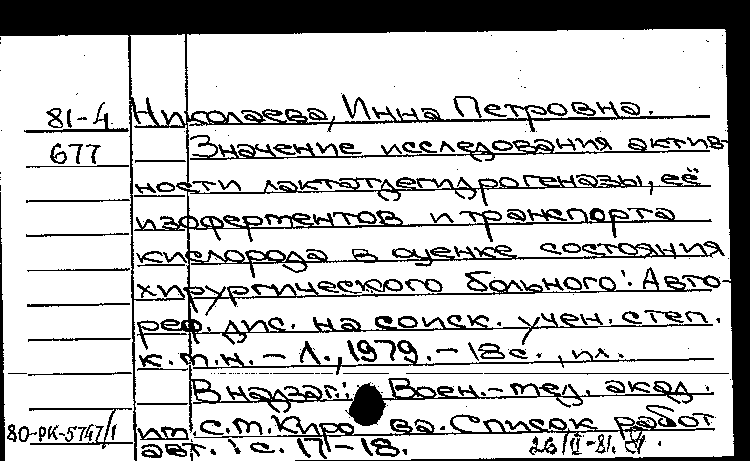 81-4 Николаева, Инна Петровна.
677 Значение исследования актив-
ности лактатдегидрогеназы, её
изоферментов и транспорта
кислорода в оценке состояния
хирургического больного: Авто-
реф. дис. на соиск. учен. степ.
к.м.н. - Л., 1979. - 18 с., ил.
В надзаг.: Воен.-мед. акад.
80-РК-5747/1 им. С.М. Кирова. Список работ
авт.: с. 17-18.